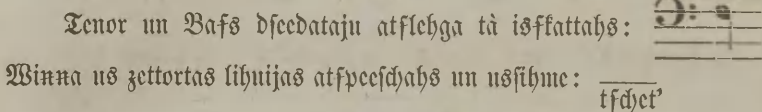 Tenor un Baſs dſeedataju atſlehga tà isſkattahs:
Wiꞥꞥa us zettortas lihnijas atſpeeſchahs un usſihme:
tſchet’